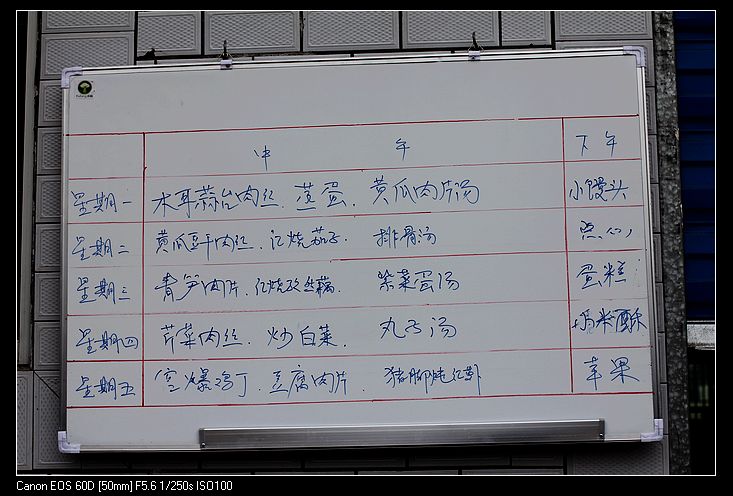 中午 下午
星期一 木耳蒜台肉丝、蒸蛋、黄瓜肉片汤 小馒头
星期二 黄瓜豆干肉丝、红烧茄子 排骨汤 点心
星期三 青笋肉片、红烧 藕 紫菜蛋汤 蛋糕
星期四 芹菜肉丝、炒白菜、 丸子汤 米酥
星期五 爆鸡丁、豆腐肉片、 猪脚炖红 苹果
Canon EOS 60D [50mm] F5.6 1/250s ISO100